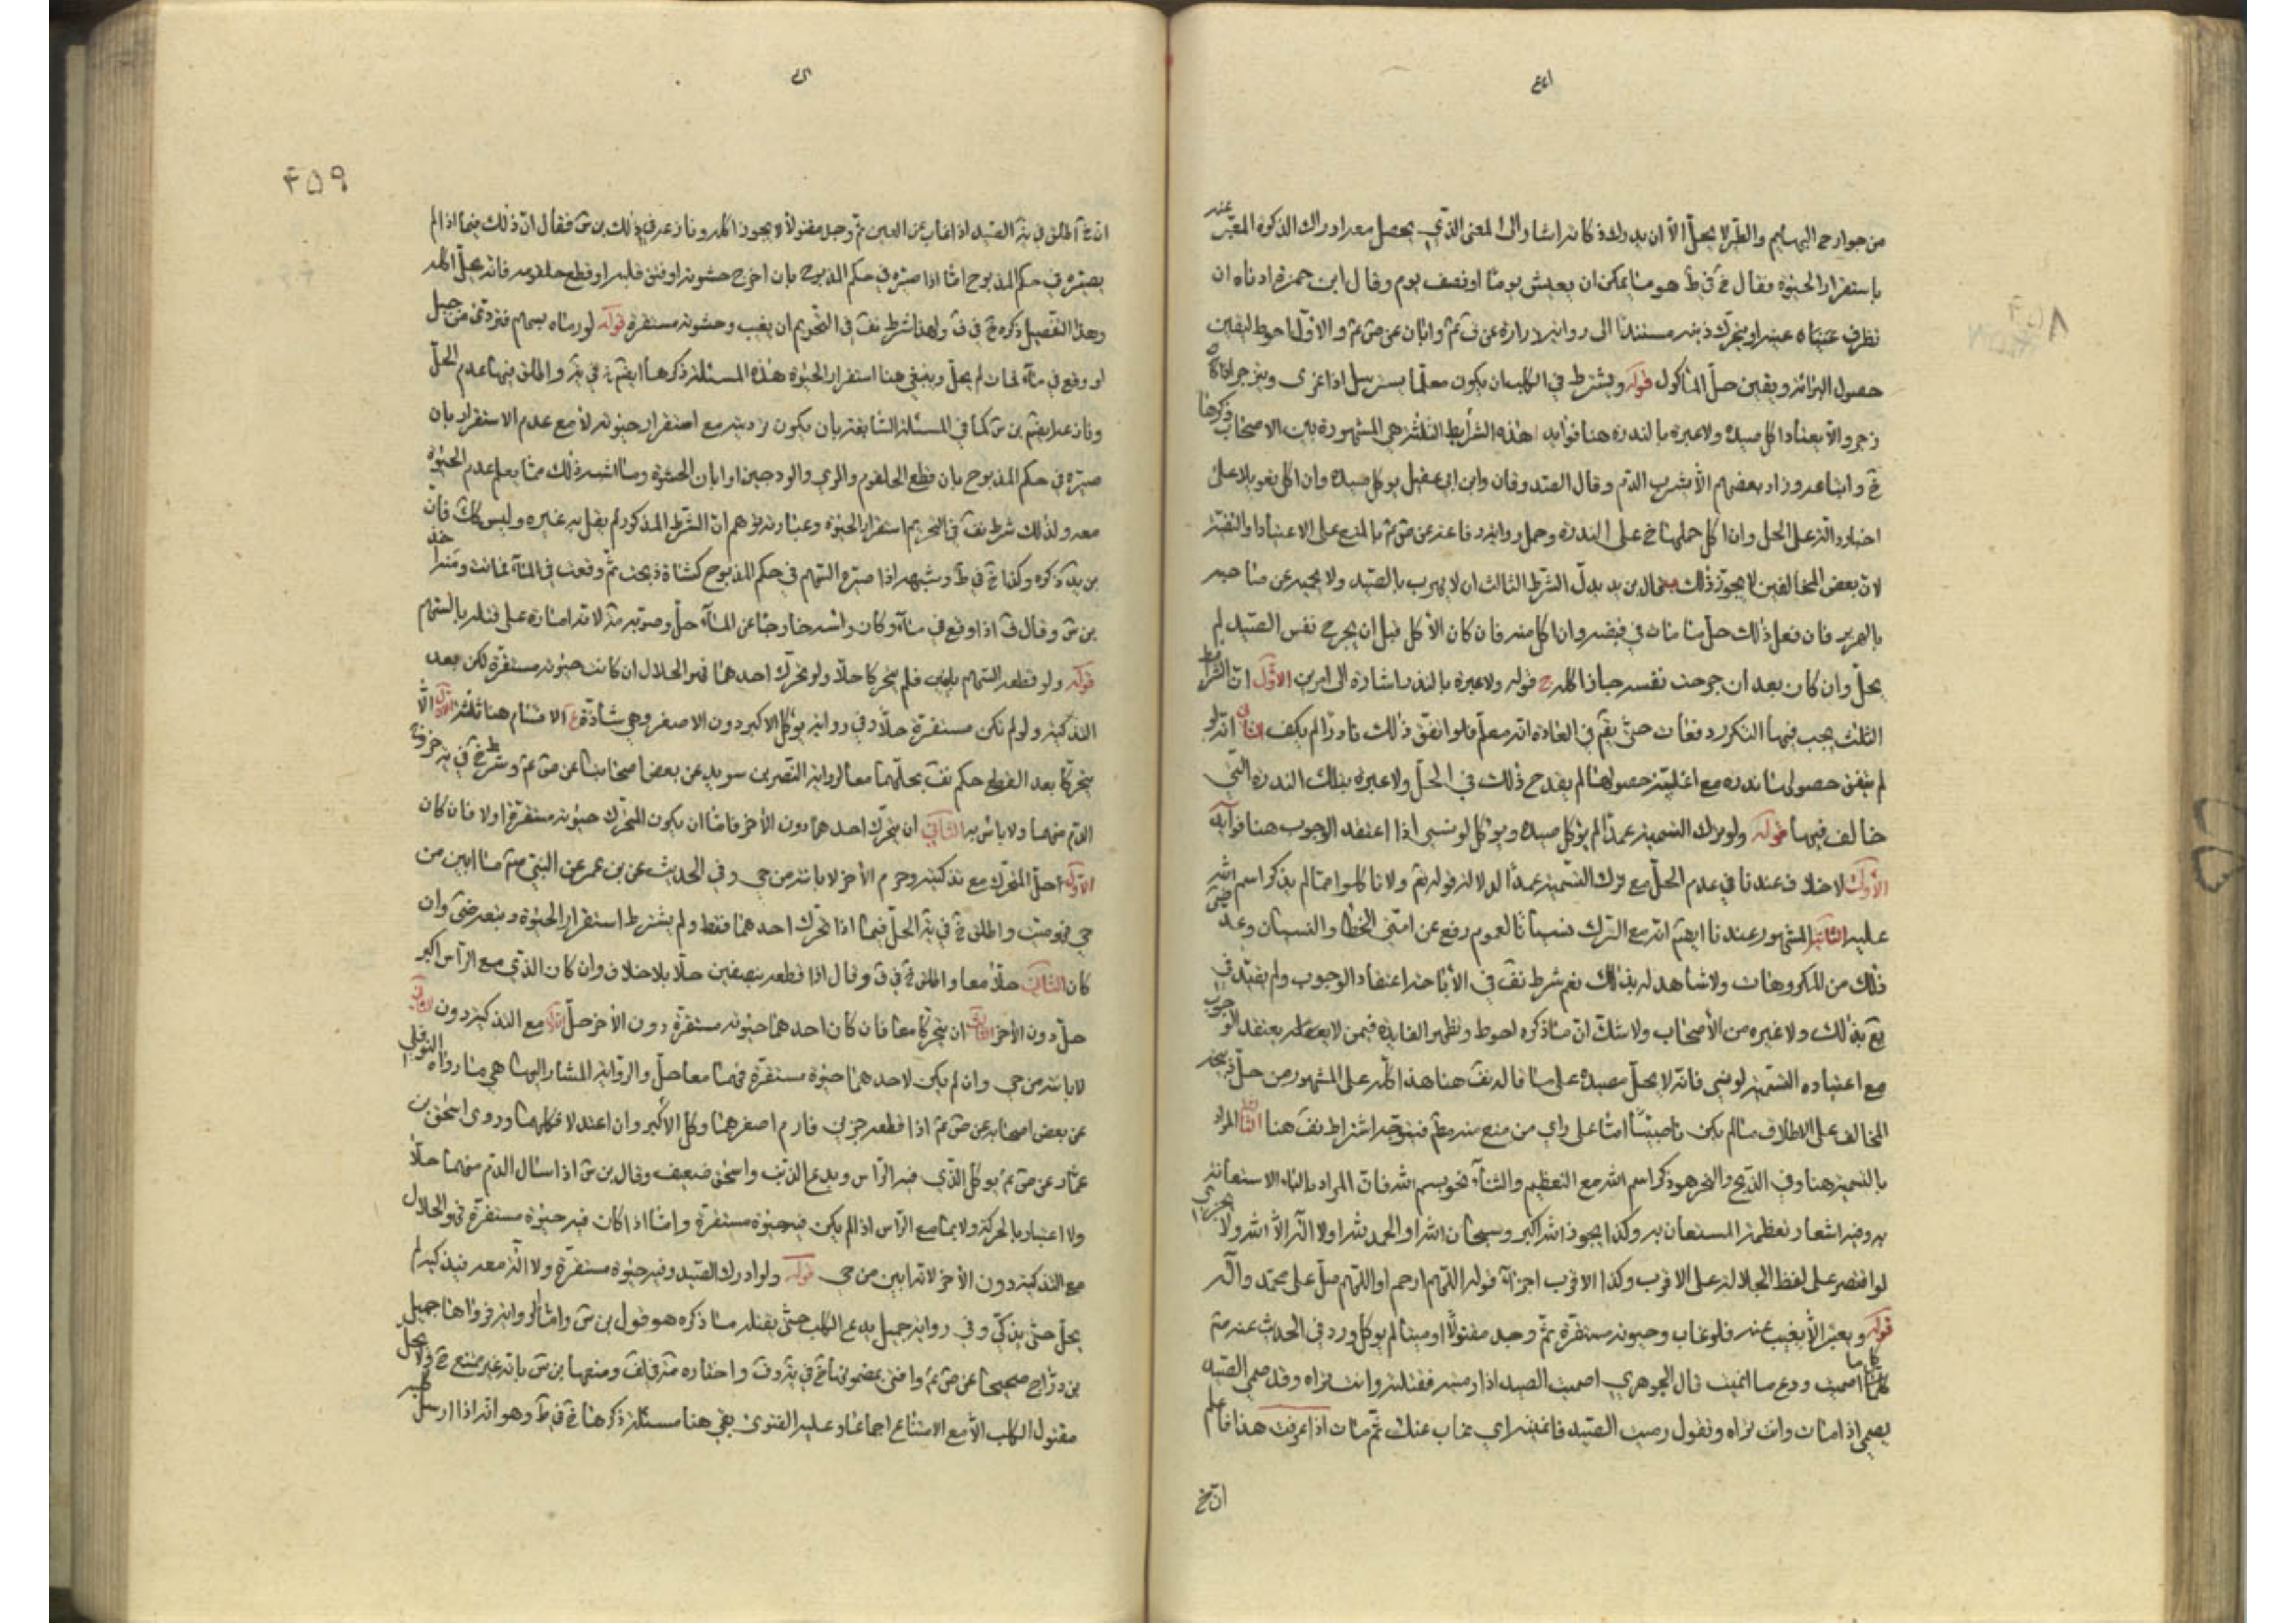 من جوارح البهايم والطير لا يحل الا ان يدرك ذكاته اشار الى المعنى الذي يحصل معه ادراك الذكوة المعبر عنه
باستقرار الحيوة فقال خ في ط هو ما يمكن ان يعيش يوما او نصف يوم وقال ابن حمزة ادناه ان
نظرف عيناه عينه او يتحرك ذنبه مستندا الى رواية زرارة عن ق ع وابان عن ص ع والاول احوط ليقين
حصول البرائة ويقين حل المأكول قوله ويشترط في الكلب ان يكون معلما يسترسل اذا اغرى وينزجر اذا
زجر والا يعتاد اكل صيده ولا عبرة بالندرة هنا فوايد هذه الشرايط الثلثة هي المشهورة بين الاصحاب ذكرها
خ واتباعه وزاد بعضهم الا يشرب الدم وقال الصدوقان وابن ابي عقيل يوكل صيده وان اكل تعويلا على
اخبار دالة على الحل وان اكل حملها خ على الندرة وحمل رواية رفاعة عن ص ع بالمنع على الاعتياد او التقية
لان بعض المخالفين لا يجوز ذلك
بالهرير فان فعل ذلك حل ما مات في قبضه وان اكل منه فان كان الأكل قبل ان يجرح نفس الصيد لم
يحل وان كان بعد ان جرحت نفسه جاز اكله ج قوله ولا عبرة بالندرة اشارة الى امرين الاول ان الشرايط
الثلث يجب فيها التكرر دفعات حتى يقع في العادة انه معلم فلو اتفق ذلك نادرا لم يكف الثاني انه لو
لم يتفق حصولها ندرة مع اغلبية حصولها لم يقدح ذلك في الحل ولا عبرة بتلك الندرة التي
خالف فيها قوله ولو ترك التسمية عمدا لم يؤكل صيده ويوكل لو نسي اذا اعتقد الوجوب هنا فوايد
الاولى لا خلاف عندنا في عدم الحل مع ترك التسمية عمدا لدلالة قوله تع ولا تاكلوا مما لم يذكر اسم الله
عليه الثانية المشهور عندنا ايضا انه مع الترك نسيانا لعموم رفع عن امتي الخطا والنسيان وعد
ذلك من المكروهات ولا شاهد له بذلك نعم شرط نف في الأباحة اعتقاد الوجوب ولم يقيد في
يع بذلك ولا غيره من الأصحاب ولا شك ان ما ذكره احوط وتظهر الفايدة فيمن لا يعتقد الوجوب
مع اعتياده التسمية لو نسي فانه لا يحل صيده على ما قاله نف هنا هذا كله على المشهور من حل ذبيحة
المخالف على الاطلاق ما لم يكن ناصبيا امّا على راي من منع منه مطلقا فيتوجه اشتراط نف هنا الثالثة المراد
بالتسمية هنا وفي الذبح والنحر هو ذكر اسم الله مع التعظيم والثناء نحو بسم الله فان المراد بالباء الاستعانة
به وفيه اشعار بعظمة المستعان به وكذا يجوز الله اكبر وسبحان الله او الحمد لله او لا اله الا الله ولا يجزي
لو اقتصر على لفظ الجلالة على الاقرب وكذا الاقرب اجزائه قوله اللهم ارحم او اللهم صل على محمد واله
قوله ويعتبر الا يغيب عنه فلو غاب وحيوته مستقرة ثم وجد مقتولا او ميتا لم يوكل ورد في الحديث عنه ص
كل ما اصميت ودع ما انميت قال الجوهري اصميت الصيد اذا رميته فقتلته وانت تراه وقد صمى الصيد
يصمى اذا مات وانت تراه وتقول رميت الصيد فانميته اي غاب عنك ثم مات اذا عرفت هذا فاعلم
ان خ
۴۵۹
ان خ اطلق في ية الصيد اذا غاب عن العين ثم وجد مقتولا لا يجوز اكله ونازعه في ذلك بن س فقال ان ذلك فيما اذا لم
يصيره في حكم المذبوح امّا اذا صيره في حكم المذبوح بان اخرج حشوته او فتق قلبه او قطع حلقومه فانه يحل اكله
وهذا التفصيل ذكره خ في ف ولهذا شرط نف في التحريم ان يغيب وحيوته مستقرة قوله لو رماه بسهم فتردى من جبل
او وقع في ماء فمات لم يحل وينبغي هنا استقرار الحيوة هذه المسئلة ذكرها ايضا خ في ية واطلق فيها عدم الحل
ونازعه ايضا بن س كما في المسئلة السابقة بان يكون ترديته مع استقرار حيوته لا مع عدم الاستقرار بان
صيره في حكم المذبوح بان قطع الحلقوم والمري والودجين او ابان الحشوة وما اشبه ذلك مما يعلم عدم الحيوة
معه ولذلك شرط نف في التحريم استقرار الحيوة وعبارته توهم ان الشرط المذكور لم يقل به غيره وليس كك فان
بن يه ذكره وكذا خ في ط وشبهه اذا صيره السهم في حكم المذبوح كشاة ذبحت ثم وقعت في الماء فماتت
بن س وقال ق اذا وقع في ماء وكان راسه خارجا عن الماء حل وصوبه لانه امارة على قتله بالسهم
قوله ولو قطعه السهم باثنين فلم يتحركا حلا ولو تحرك احدهما فهو الحلال ان كانت حيوته مستقرة لكن بعد
التذكية ولو لم تكن مستقرة حلا وفي رواية يؤكل الاكبر دون الاصغر وهي شاذة الاقسام هنا ثلثة الاول الا
يتحركا بعد القطع حكم نف بحلهما معا لرواية النضر بن سويد عن بعض اصحابنا عن ص ع وشرط خ في ية خروج
الدم منهما ولا باس به الثاني ان يتحرك احدهما دون الآخر فامّا ان يكون المتحرك حيوته مستقرة او لا فان كان
الاول احل المتحرك مع تذكيته وحرم الآخر لابانته من حي وفي الحديث عن بن عمر عن النبي ص ما ابين من
حي فهو ميت واطلق خ في ية الحل فيما اذا تحرك احدهما فقط ولم يشترط استقرار الحيوة وتبعه وان
كان الثاني حلا معا واطلق خ في ف وقال اذا قطعه بنصفين حلا بلا خلاف وان كان الذي مع الراس اكبر
حل دون الآخر الثالث ان يتحركا معا فان كان احدهما حيوته مستقرة دون الآخر حل الاول مع التذكية دون الثاني
لابانته من حي وان لم يكن لاحدهما حيوة مستقرة فهما معا حل والرواية المشار اليها هي ما رواه النوفلي
عن بعض اصحابه عن ص ع اذا قطعه جزئين فارم اصغرهما وكل الاكبر وان اعتدلا فكلهما وروى اسحق بن
عمار عن ص ع يؤكل الذي فيه الراس ويدع الذنب واسحق ضعيف وقال بن س اذا سال الدم منهما حلا
ولا اعتبار بالحركة ولا بما مع الراس اذا لم يكن فيه حيوة مستقرة وامّا اذا كان فيه حيوة مستقرة فهو الحلال
مع التذكية دون الآخر لانه ابين من حي قوله ولو ادرك الصيد وفيه حيوة مستقرة ولا الة معه فيذكيه لم
يحل حتى يذكى وفي رواية جميل يدع الكلب حتى يقتله ما ذكره هو قول بن س وامّا الرواية فرواها جميل
بن دراج صحيحا عن ص ع وافتى بمضمونها خ في ية وق واختاره في لف ومنعها بن س بانه غير ممتنع
مقتول الكلب الا مع الامتناع اجماعا وعليه الفتوى بقي هنا مسئلة ذكرها خ في ط وهو انه اذا ارسل